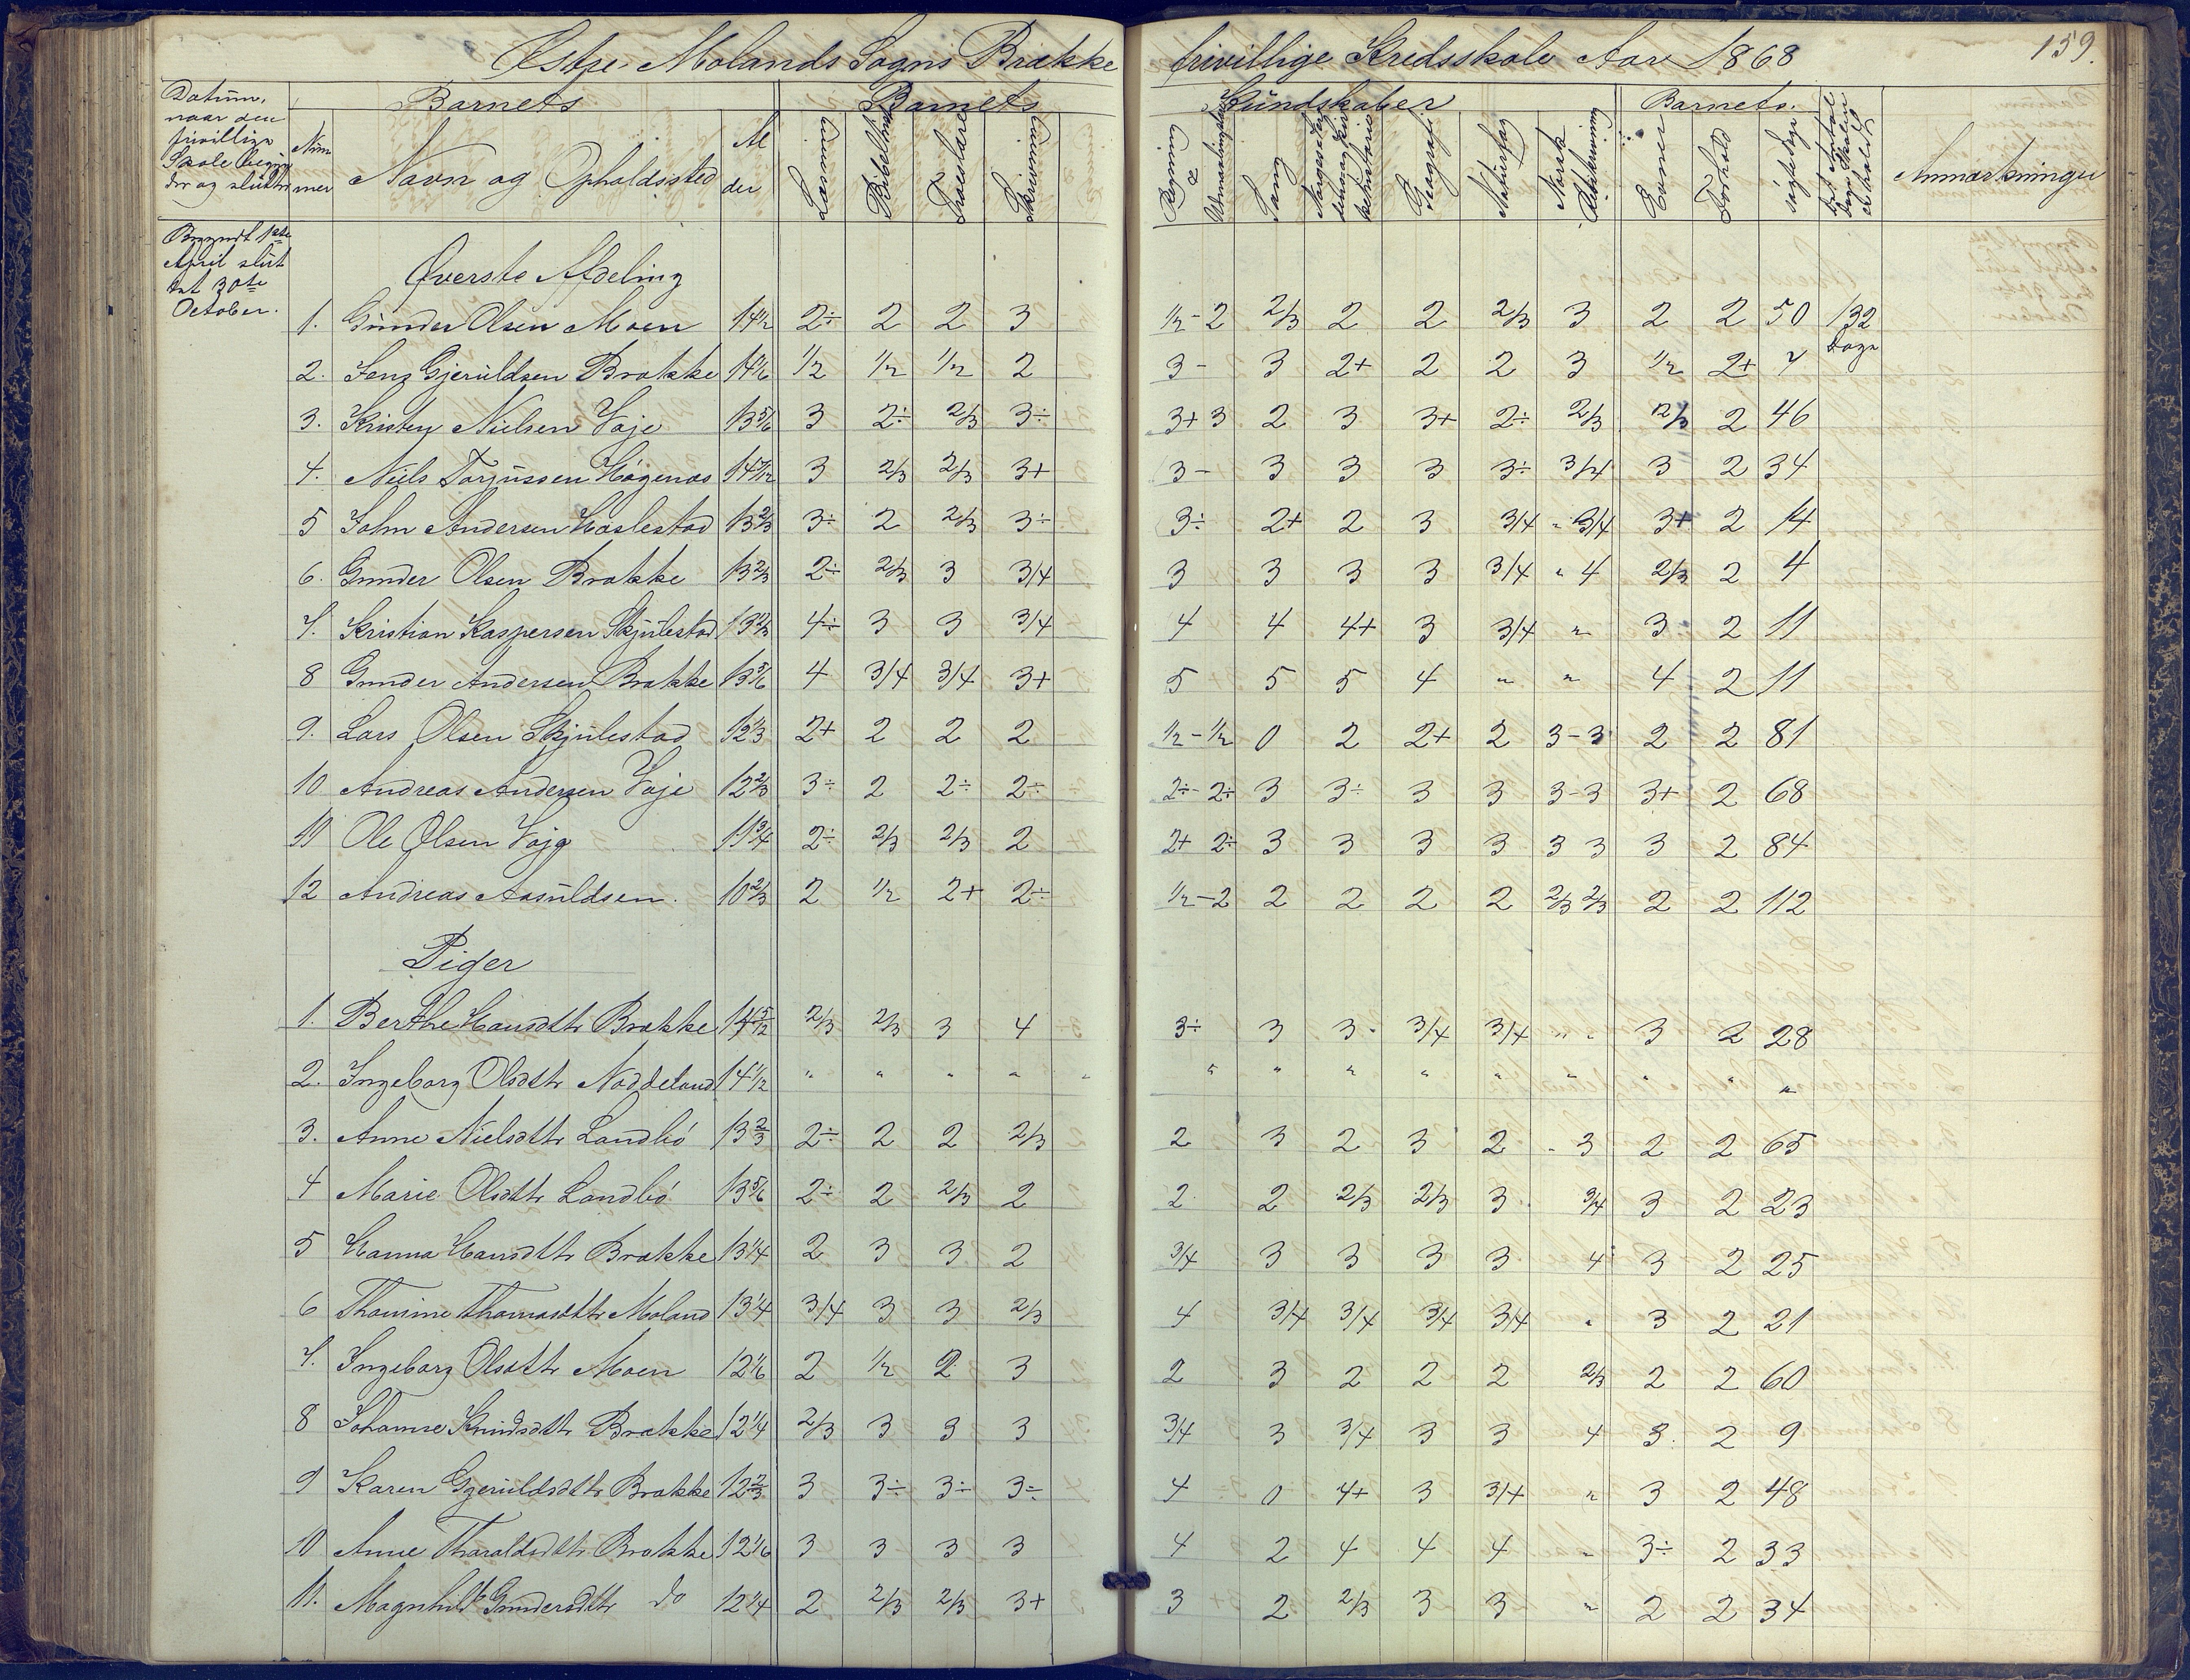 Østre Molands Sogns Brække frivillige Kredsskole Aar 1868
159.
Datum, naar den frivillige Skole begynder og sluttes
Nummer
Barnets
Navn og Opholdssted
Alder
Barnets Kundskaber
Læsning
Bibelhist
Troeslære
Skrivning
Regning
Sang
Geografi
Naturfag
Norsk Retskrivning
Barnets
Evner
Forhold
søgte dage
Anmærkninger
Begyndt 1ste April sluttet 30te October.
Øverste Afdeling
1. Gunder Olsen Moen 14½ 2÷ 2 2 3 ½-2 2/3 2 2 2/3 3 2 2 50 132 Dage
2. Jens Gjeruldsen Brække 14 1/6 1/2 1/2 1/2 2 3- 3 2+ 2 2 3 1/2 2+ 7
3. Kristen Nielsen Vaje 13 5/6 3 2÷ 2/3 3÷ 3+ 3 2 3 3+ 2÷ 2/3 2/3 2 46
4. Niels Torjussen Høgenæs 14 7/12 3 2/3 2/3 3+ 3- 3 3 3 3÷ 3/4 3 2 34
5 John Andersen Haslestad 13 2/3 3÷ 2 2/3 3÷ 3÷ 2+ 2 3 3/4 " 3/4 3+ 2 14
6. Gunder Olsen Brække 13 2/3 2÷ 2/3 3 3/4 3 3 3 3 3/4 " 4 2/3 2 4
7. Kristian Kaspersen Skjulestad 13 2/3 4÷ 3 3 3/4 4 4 4+ 3 3/4 " 3 2 11
8 Gunder Andersen Brække 13 5/6 4 3/4 3/4 3+ 5 5 5 4 " " 4 2 11
9. Lars Olsen Skjulestad 12 1/3 2+ 2 2 2 ½-½ 0 2 2+ 2 3-3 2 2 81
10 Andreas Andersen Vaje 12 2/3 3÷ 2 2÷ 2÷ 2÷-2÷ 3 3÷ 3 3 3-3 3+ 2 68
11 Ole Olsen Vaje 11 3/4 2÷ 2/3 2/3 2 2+ 2÷ 3 3 3 3 3 3 3 2 84
12 Andreas Aasuldsen. 10 2/3 2 1/2 2+ 2÷ ½-2 2 2 2 2 2/3 2/3 2 2 112
Piger
1. Berthe Hansdttr Brække 14 5/12 2/3 2/3 3 4 3÷ 3 3 3/4 3/4 " " 3 2 28
2. Ingeborg Olsdttr Naddeland 14 1/12 " " " " " " " " " " " " "
3. Anne Nielsdttr Landbø 13 2/3 2÷ 2 2 2/3 2 3 2 3 2 - 3 2 2 65
4 Marie Olsdttr Landbø 13 5/6 2÷ 2 2/3 2 2 2 2/3 2/3 3 3/4 3 2 23
5 Hanna Hansdttr Brække 13 1/4 2 3 3 2 3/4 3 3 3 3 4 3 2 25
6 Thomine Thomasdttr Moland 13 1/4 3/4 3 3 2/3 4 3/4 3/4 3/4 3/4 " 3 2 21
7. Ingeborg Olsdttr Moen 12 1/6 2 1/2 2 3 2 3 2 2 2 2/3 2 2 60
8 Johanne Knudsdttr Brække 12 1/4 2/3 3 3 3 3/4 3 3/4 3 3 4 3 2 9
9 Karen Gjeruldsdttr Brække 12 2/3 3 3÷ 3÷ 3÷ 4 0 4+ 3 3/4 " 3 2 48
10 Anne Tharaldsdttr Brække 12 1/6 3 3 3 3 4 2 4 4 4 " 3÷ 2 33
11. Magnhild Gundersdttr do 12 1/4 2 2/3 2/3 3+ 3 2 2/3 3 3 " 2 2 34